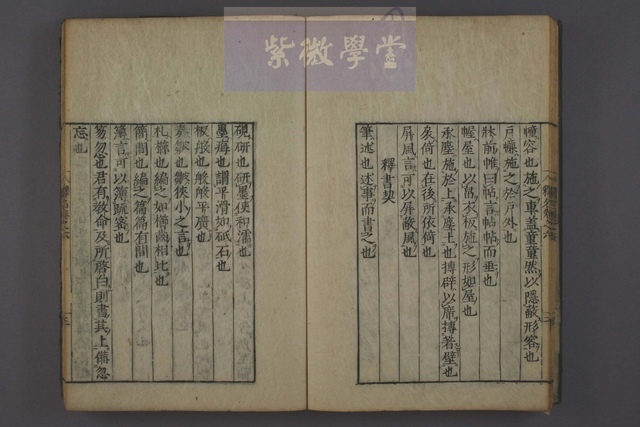 紫微學堂
幢容也施之車蓋童童然以隱蔽形容也
戶幰施之於戶外也
牀前帷曰帖言帖帖而垂也
幄屋也以帛衣板施之形如屋也
承塵施於上承塵土也搏辟以席搏著壁也
扆倚也在後所依倚也
屏風言可以屏蔽風也
釋書契
筆述也述事而書之也
硯研也研墨使和濡也
墨痗也謂平滑如砥石也
板般也般般平廣也
奏鄒也鄒狹小之言也
札櫛也編之如櫛齒相比也
簡間也編之篇篇有間也
簿言可以簿疏密也
笏忽也君有敎命及所啓白則書其上備忽
忘也